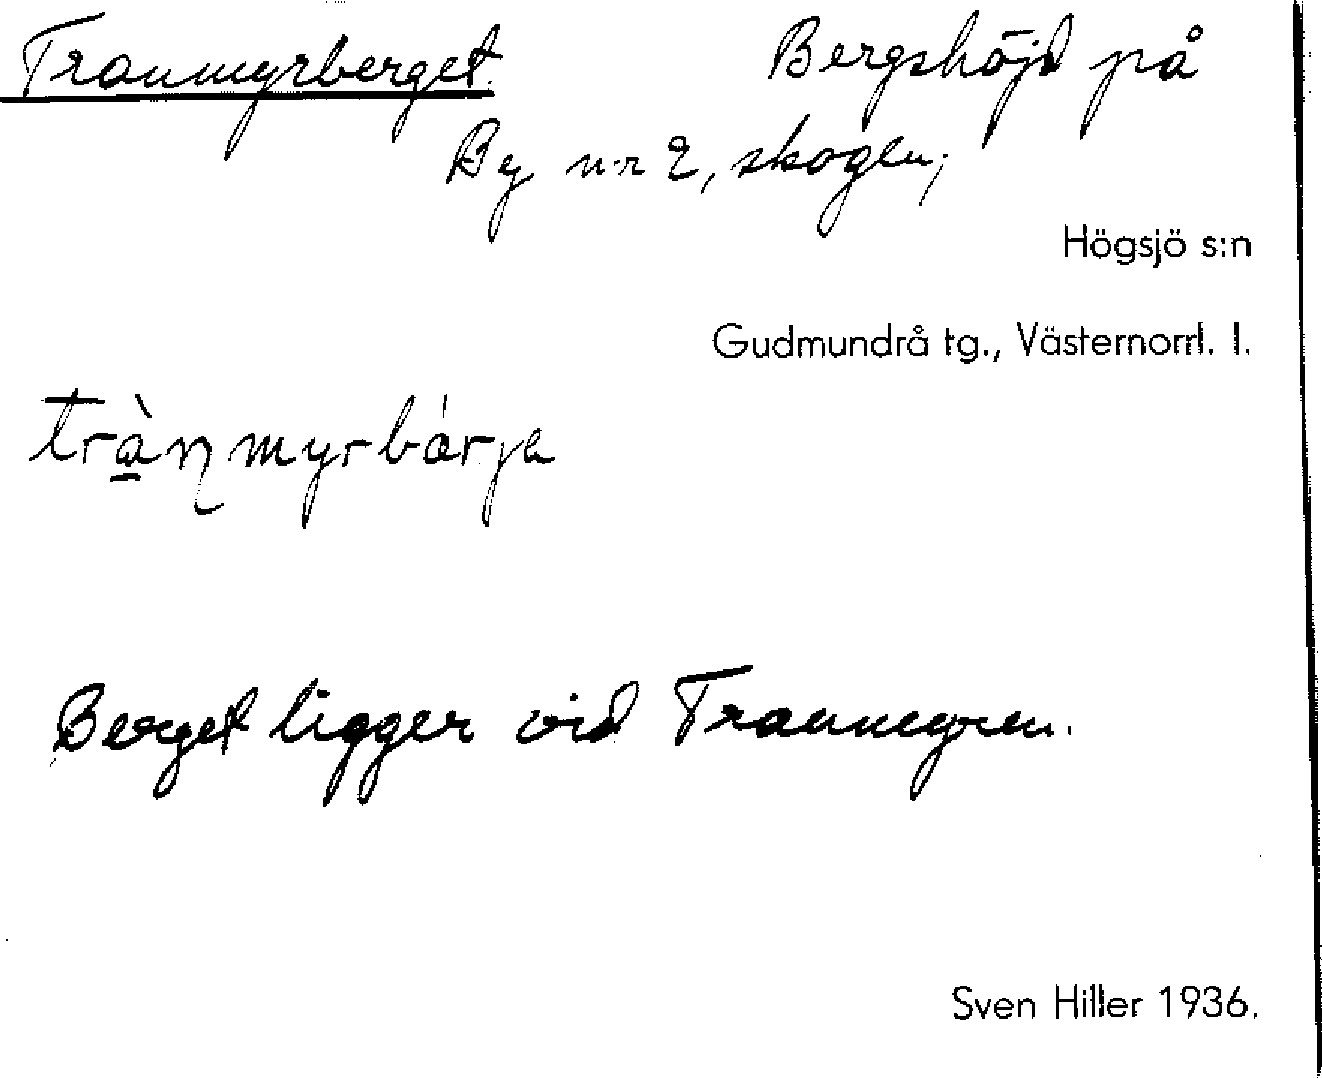 Tranmyrberget. Bergshöjd på
By n:r 2, skogen;
Högsjö s:n
Gudmundrå tg., Västernorrl. l.
trànmyrbárja
Berget ligger vid Tranmyren.
Sven Hiller 1936.